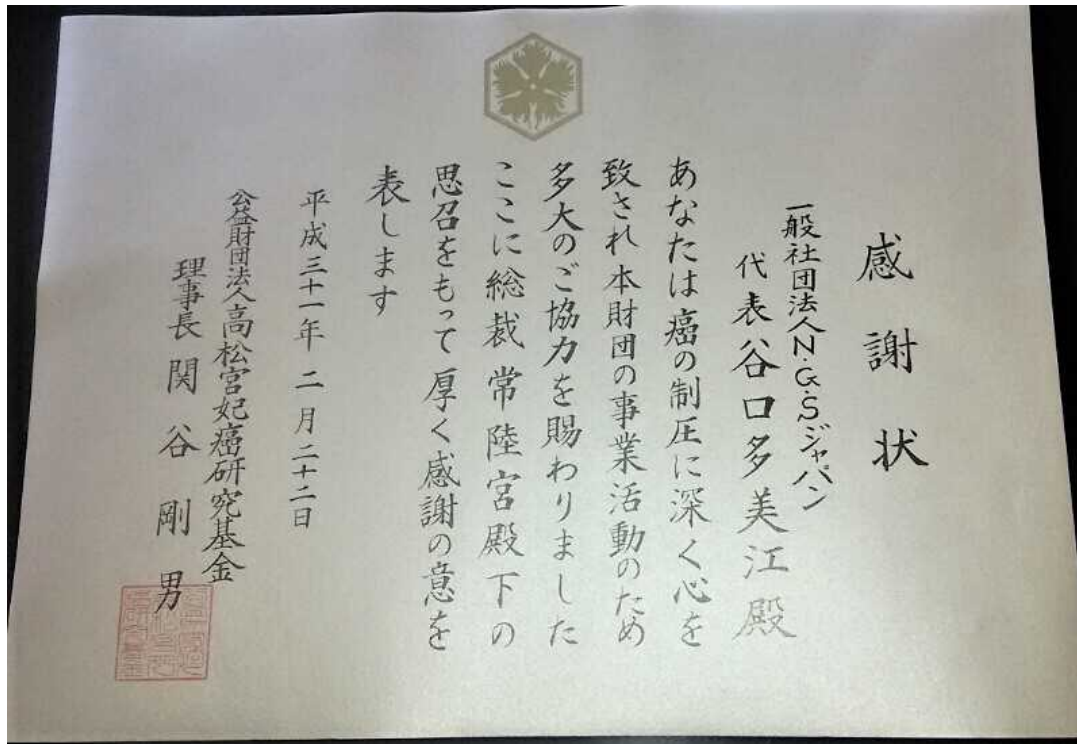 感謝状
一般社団法人N・G・Sジャパン
代表谷口多美江殿
あなたは癌の制圧に深く心を
致され本財団の事業活動のため
多大のご協力を賜わりました
ここに総裁常陸宮殿下の
思召をもって厚く感謝の意を
表します
平成三十一年二月二十二日
公益財団法人高松宮妃癌研究基金
理事長関谷剛男